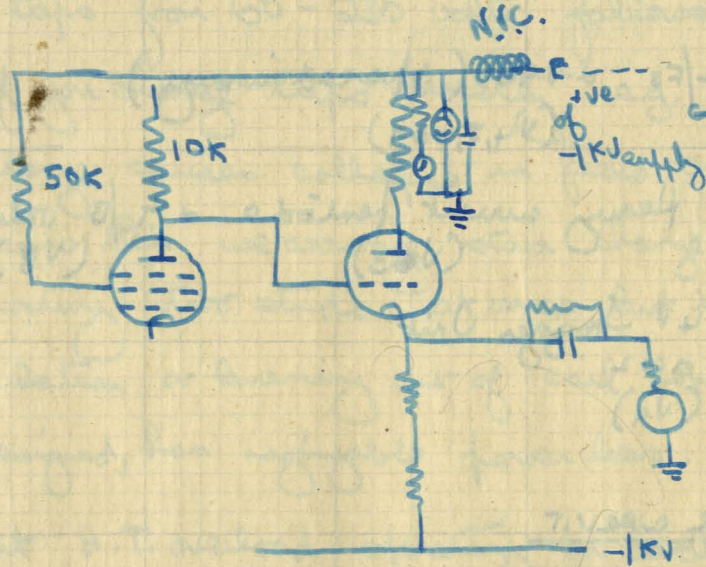 N.I.C.
E
+ve
of
-1KV supply
50K
10K
-1KV.